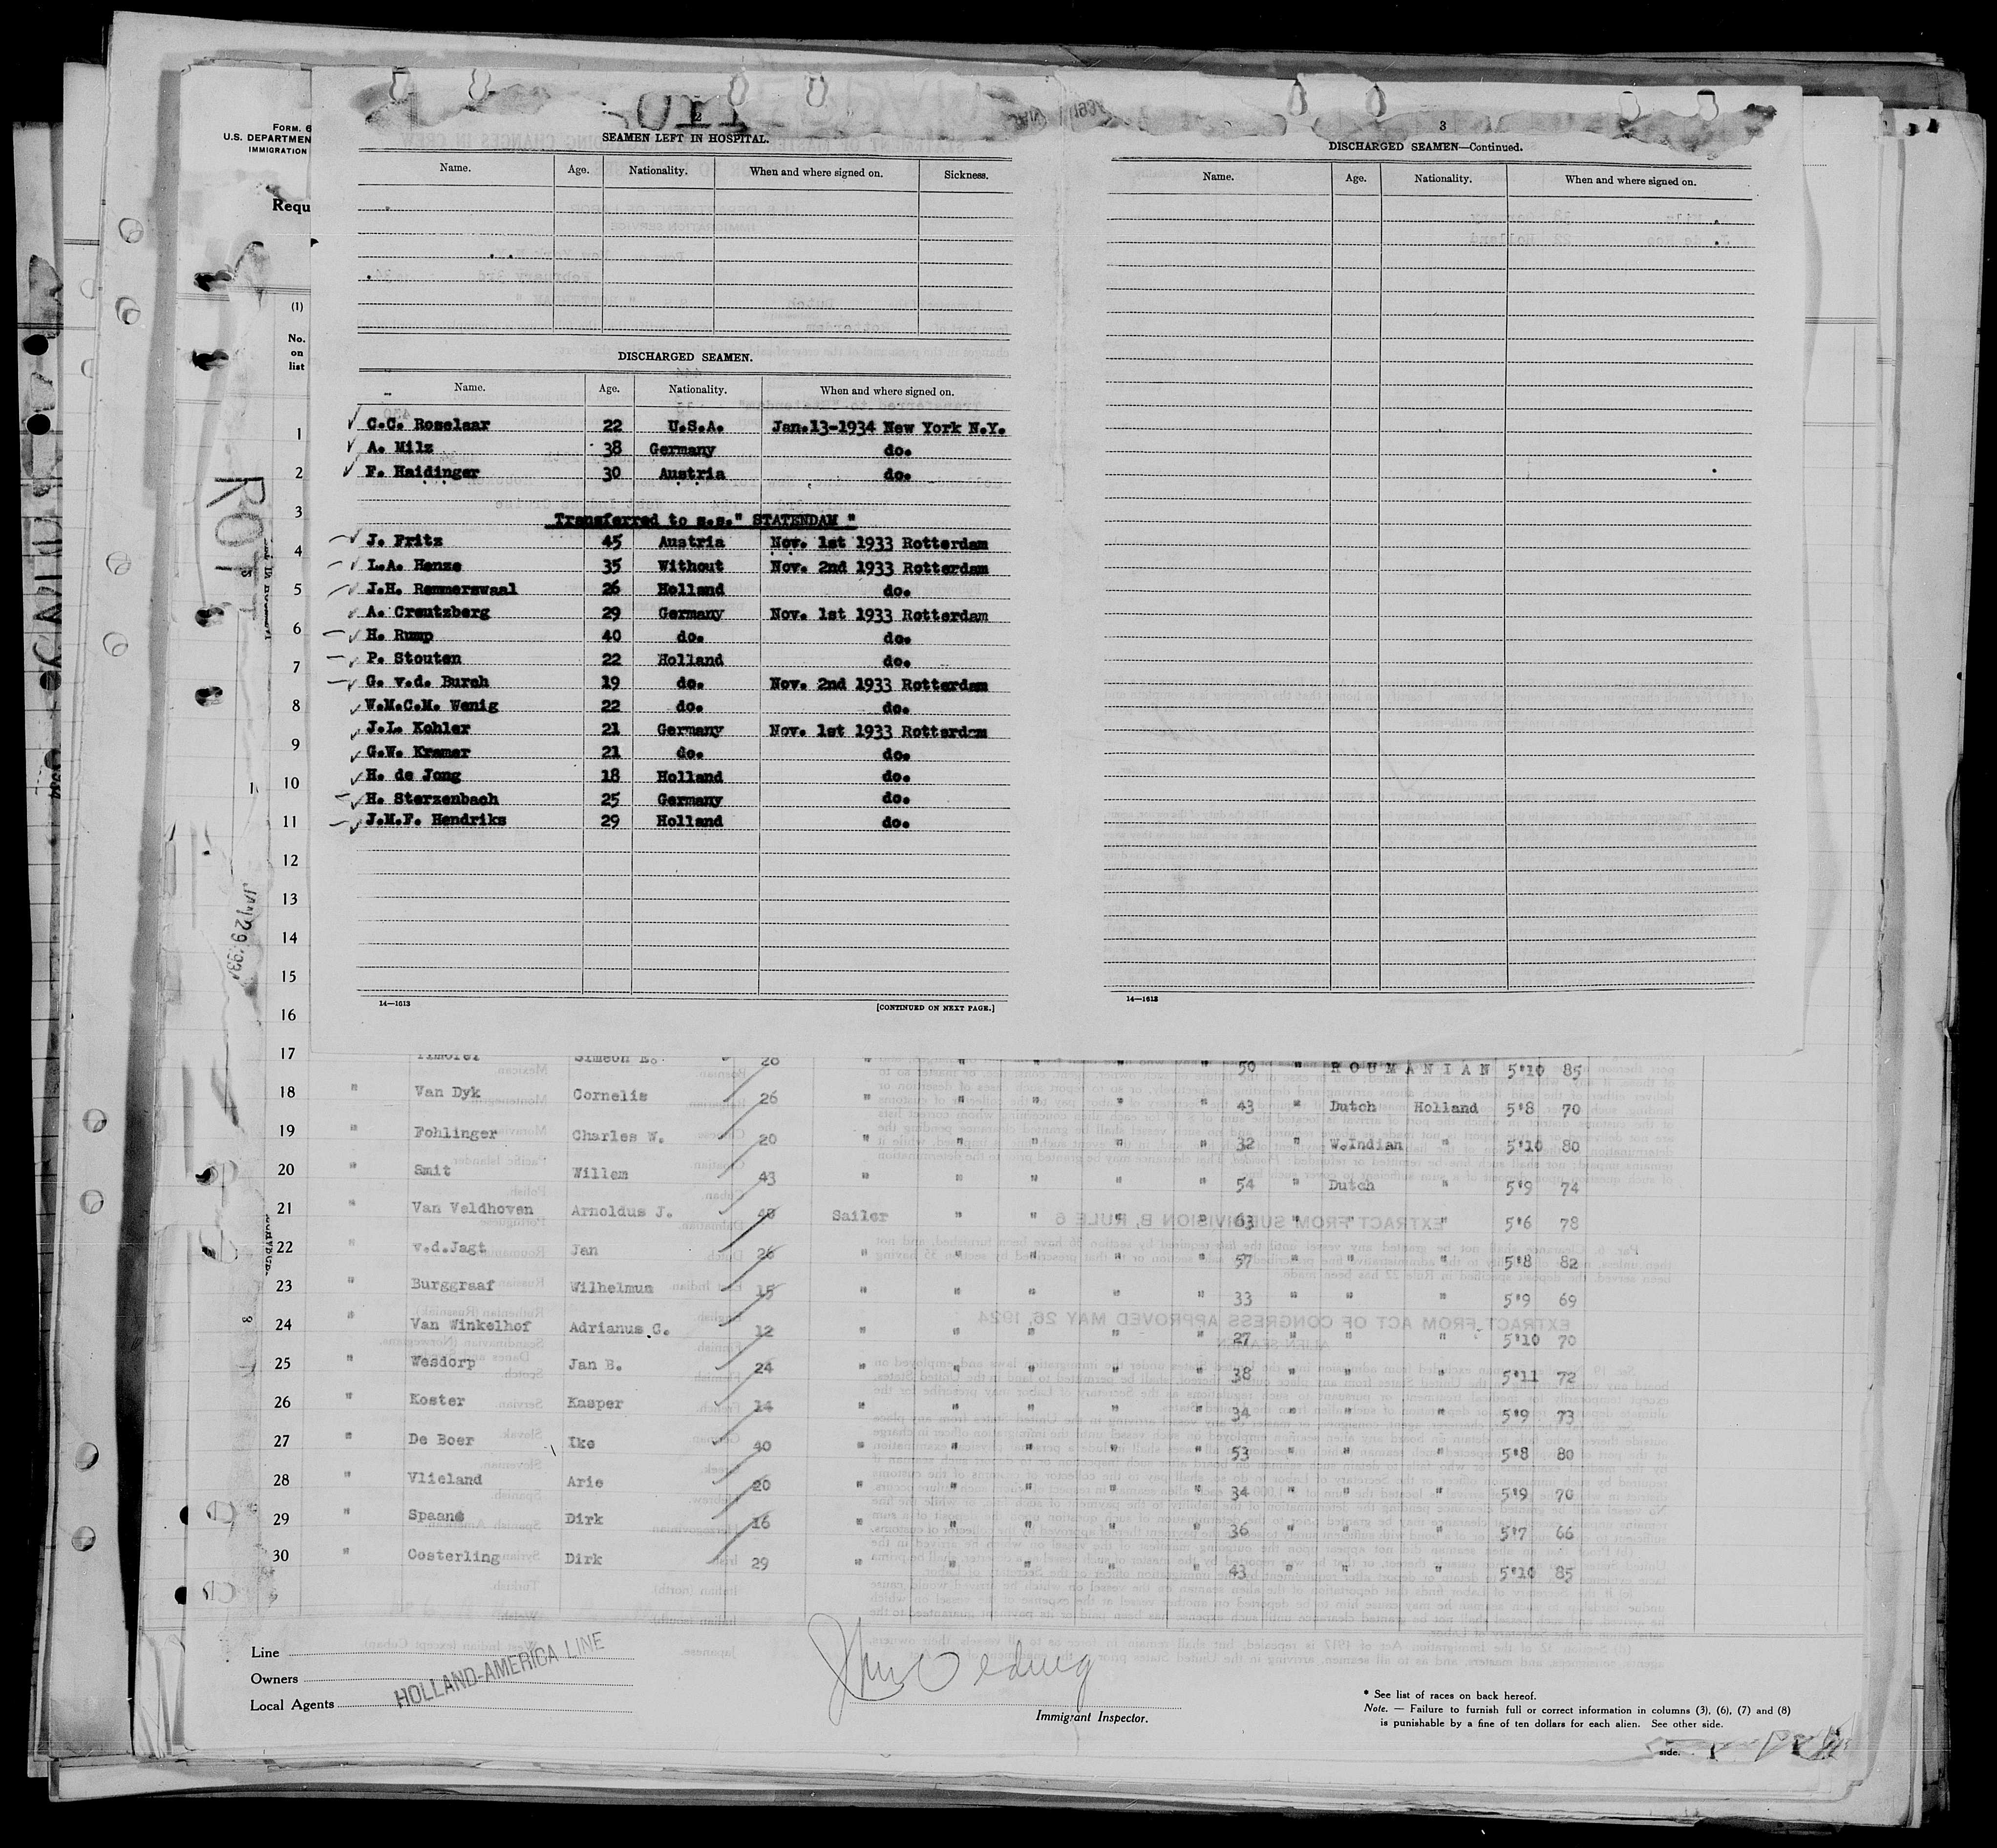 FORM. 6
U.S. DEPARTMEN
IMMIGRATION
Requ
(1)
No.
on
list
2
SEAMEN LEFT IN HOSPITAL.
Name. Age. Nationality. When and where signed on. Sickness.
DISCHARGED SEAMEN.
Name. Age. Nationality. When and where signed on.
C.C. Roselaar 22 U.S.A. Jan.13-1934 New York N.Y.
A. Milz 38 Germany do.
F. Haidinger 30 Austria do.
Transferred to s.s." STATENDAM "
J. Fritz 45 Austria Nov. 1st 1933 Rotterdam
L.A. Henze 35 Without Nov. 2nd 1933 Rotterdam
J.H. Remmerswaal 26 Holland do.
A. Creutzberg 29 Germany Nov. 1st 1933 Rotterdam
H. Rump 40 do. do.
P. Stouten 22 Holland do.
G. v.d. Burch 19 do. Nov. 2nd 1933 Rotterdam
W.M.C.M. Wenig 22 do. do.
J.L. Kohler 21 Germany Nov. 1st 1933 Rotterdam
G.W. Kramer 21 do. do.
H. de Jong 18 Holland do.
H. Sterzenbach 25 Germany do.
J.M.F. Hendriks 29 Holland do.
14—1613 [CONTINUED ON NEXT PAGE.]
3
DISCHARGED SEAMEN—Continued.
Name. Age. Nationality. When and where signed on.
14—1613
1
2
3
4
5
6
7
8
9
10
11
12
13
14
15
16
17 Simeon 28 " " " " " 50 " ROUMANIAN 5'10 85
18 " Van Dyk Cornelis 26 " " " " " 43 " Dutch Holland 5'8 70
19 " Fohlinger Charles W. 20 " " " " " 32 " W.Indian " 5'10 80
20 " Smit Willem 43 " " " " " 54 " Dutch " 5'9 74
21 " Van Veldhoven Arnoldus J. 48 Sailer " " " " 63 " " " 5'6 78
22 " v.d.Jagt Jan 26 " " " " " 57 " " " 5'8 82
23 " Burggraaf Wilhelmus 15 " " " " " 33 " " " 5'9 69
24 " Van Winkelhof Adrianus C. 12 " " " " " 27 " " " 5'10 70
25 " Wesdorp Jan B. 24 " " " " " 38 " " " 5'11 72
26 " Koster Kasper 14 " " " " " 34 " " " 5'9 73
27 " De Boer Ike 40 " " " " " 53 " " " 5'8 80
28 " Vlieland Arie 20 " " " " " 34 " " " 5'9 70
29 " Spaans Dirk 16 " " " " " 36 " " " 5'7 66
30 " Oosterling Dirk 29 " " " " " 43 " " " 5'10 85
Line
Owners
Local Agents
HOLLAND-AMERICA LINE
Immigrant Inspector.
* See list of races on back hereof.
Note. — Failure to furnish full or correct information in columns (3), (6), (7) and (8)
is punishable by a fine of ten dollars for each alien. See other side.
side.